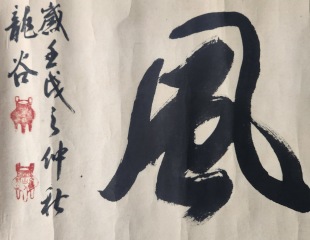 風
歲壬戌之仲秋
龍谷